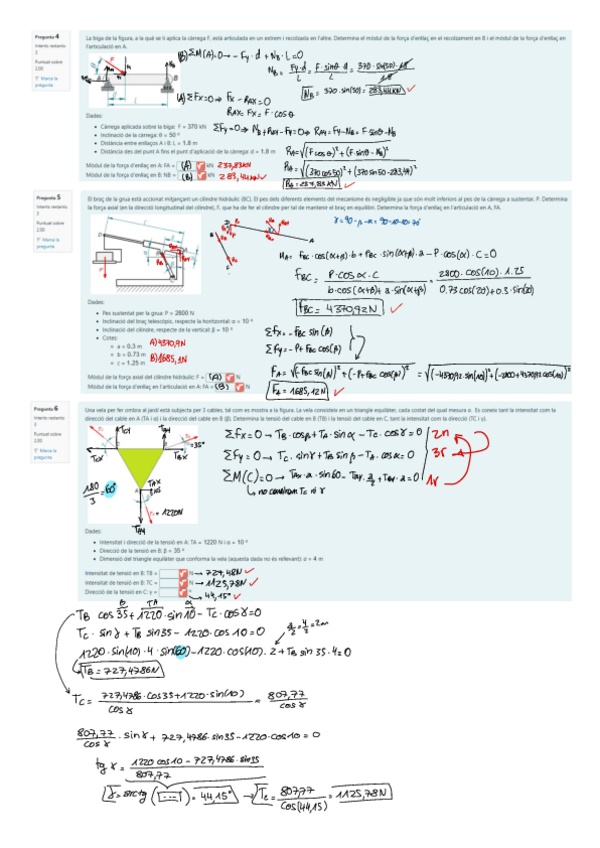 Pregunta 4
Intents restants: 3
Puntuat sobre 2,00
Marca la pregunta
La biga de la figura, a la qual se li aplica la càrrega F, està articulada en un extrem i recolzada en l'altre. Determina el mòdul de la força d'enllaç en el recolzament en B i el mòdul de la força d'enllaç en l'articulació en A.
(B) ΣM(A)=0 → -Fy·d + NB·L=0
(A) ΣFx=0 → Fx - RAx = 0
RAx = Fx = F·cosθ
ΣFy=0 → NB + RAy - Fy = 0 → RAy = Fy - NB = F·sinθ - NB
Dades:
Càrrega aplicada sobre la biga: F = 370 kN
Inclinació de la càrrega: θ = 50 º
Distància entre enllaços A i B: L = 1.8 m
Distància des del punt A fins el punt d'aplicació de la càrrega: d = 1.8 m
Mòdul de la força d'enllaç en A: FA = (A) kN 237,83KN
Mòdul de la força d'enllaç en B: NB = (B) kN 283,44KN
Pregunta 5
Intents restants: 3
Puntuat sobre 2,00
Marca la pregunta
El braç de la grua està accionat mitjançant un cilindre hidràulic (BC). El pes dels diferents elements del mecanisme és negligible ja que són molt inferiors al pes de la càrrega a sustentar, P. Determina la força axial (en la direcció longitudinal del cilindre), F, que ha de fer el cilindre per tal de mantenir el braç en equilibri. Determina la força d'enllaç en l'articulació en A, FA.
MA = FBC·cos(α+β)·b + FBC·sin(α+β)·a - P·cos(α)·C = 0
Dades:
Pes sustentat per la grua: P = 2800 N
Inclinació del braç telescòpic, respecte la horitzontal: α = 10 º
Inclinació del cilindre, respecte de la vertical: β = 10 º
Cotes:
a = 0.3 m
b = 0.73 m
c = 1.25 m
A) 4370,9N
B) 1685,1N
FBC = 4370,92N
ΣFx = -FBC sin(β)
ΣFy = -P + FBC cos(β)
FA = 1685,12N
Mòdul de la força axial del cilindre hidràulic: F = (A) N
Mòdul de la força d'enllaç en l'articulació en A: FA = (B) N
Pregunta 6
Intents restants: 3
Puntuat sobre 2,00
Marca la pregunta
Una vela per fer ombra al jardí està subjecta per 3 cables, tal com es mostra a la figura. La vela consisteix en un triangle equilàter, cada costat del qual mesura a. Es coneix tant la intensitat com la direcció del cable en A (TA i α) i la direcció del cable en B (β). Determina la tensió del cable en B (TB) i la tensió del cable en C, tant la intensitat com la direcció (TC i γ).
ΣFx=0 → TB·cosβ + TA·sinα - TC·cosγ = 0
ΣFy=0 → TC·sinγ + TB sinβ - TA·cosα = 0
ΣM(C)=0 → TAx·a·sin60 - TAy·a/2 + TBy·a = 0
180/3 = 60º
1220N
Dades:
Intensitat i direcció de la tensió en A: TA = 1220 N i α = 10 º
Direcció de la tensió en B: β = 35 º
Dimensió del triangle equilàter que conforma la vela (aquesta dada no és rellevant): a = 4 m
Intensitat de tensió en B: TB = N → 727,48N
Intensitat de tensió en B: TC = N → 1125,78N
Direcció de la tensió en C: γ = º → 44,15º
TB cos35 + 1220·sin10 - TC·cosγ = 0
TC·sinγ + TB sin35 - 1220·cos10 = 0
a/2 = 4/2 = 2m
1220·sin(10)·4·sin(60) - 1220·cos(10)·2 + TB sin35·4 = 0
TB = 727,4786N
TC = (727,4786·cos35 + 1220·sin(10))/cosγ = 807,77/cosγ
807,77/cosγ · sinγ + 727,4786·sin35 - 1220·cos10 = 0
tgγ = (1220cos10 - 727,4786·sin35)/807,77
γ = arctg(....) = 44,15º → TC = 807,77/cos(44,15) = 1125,78N